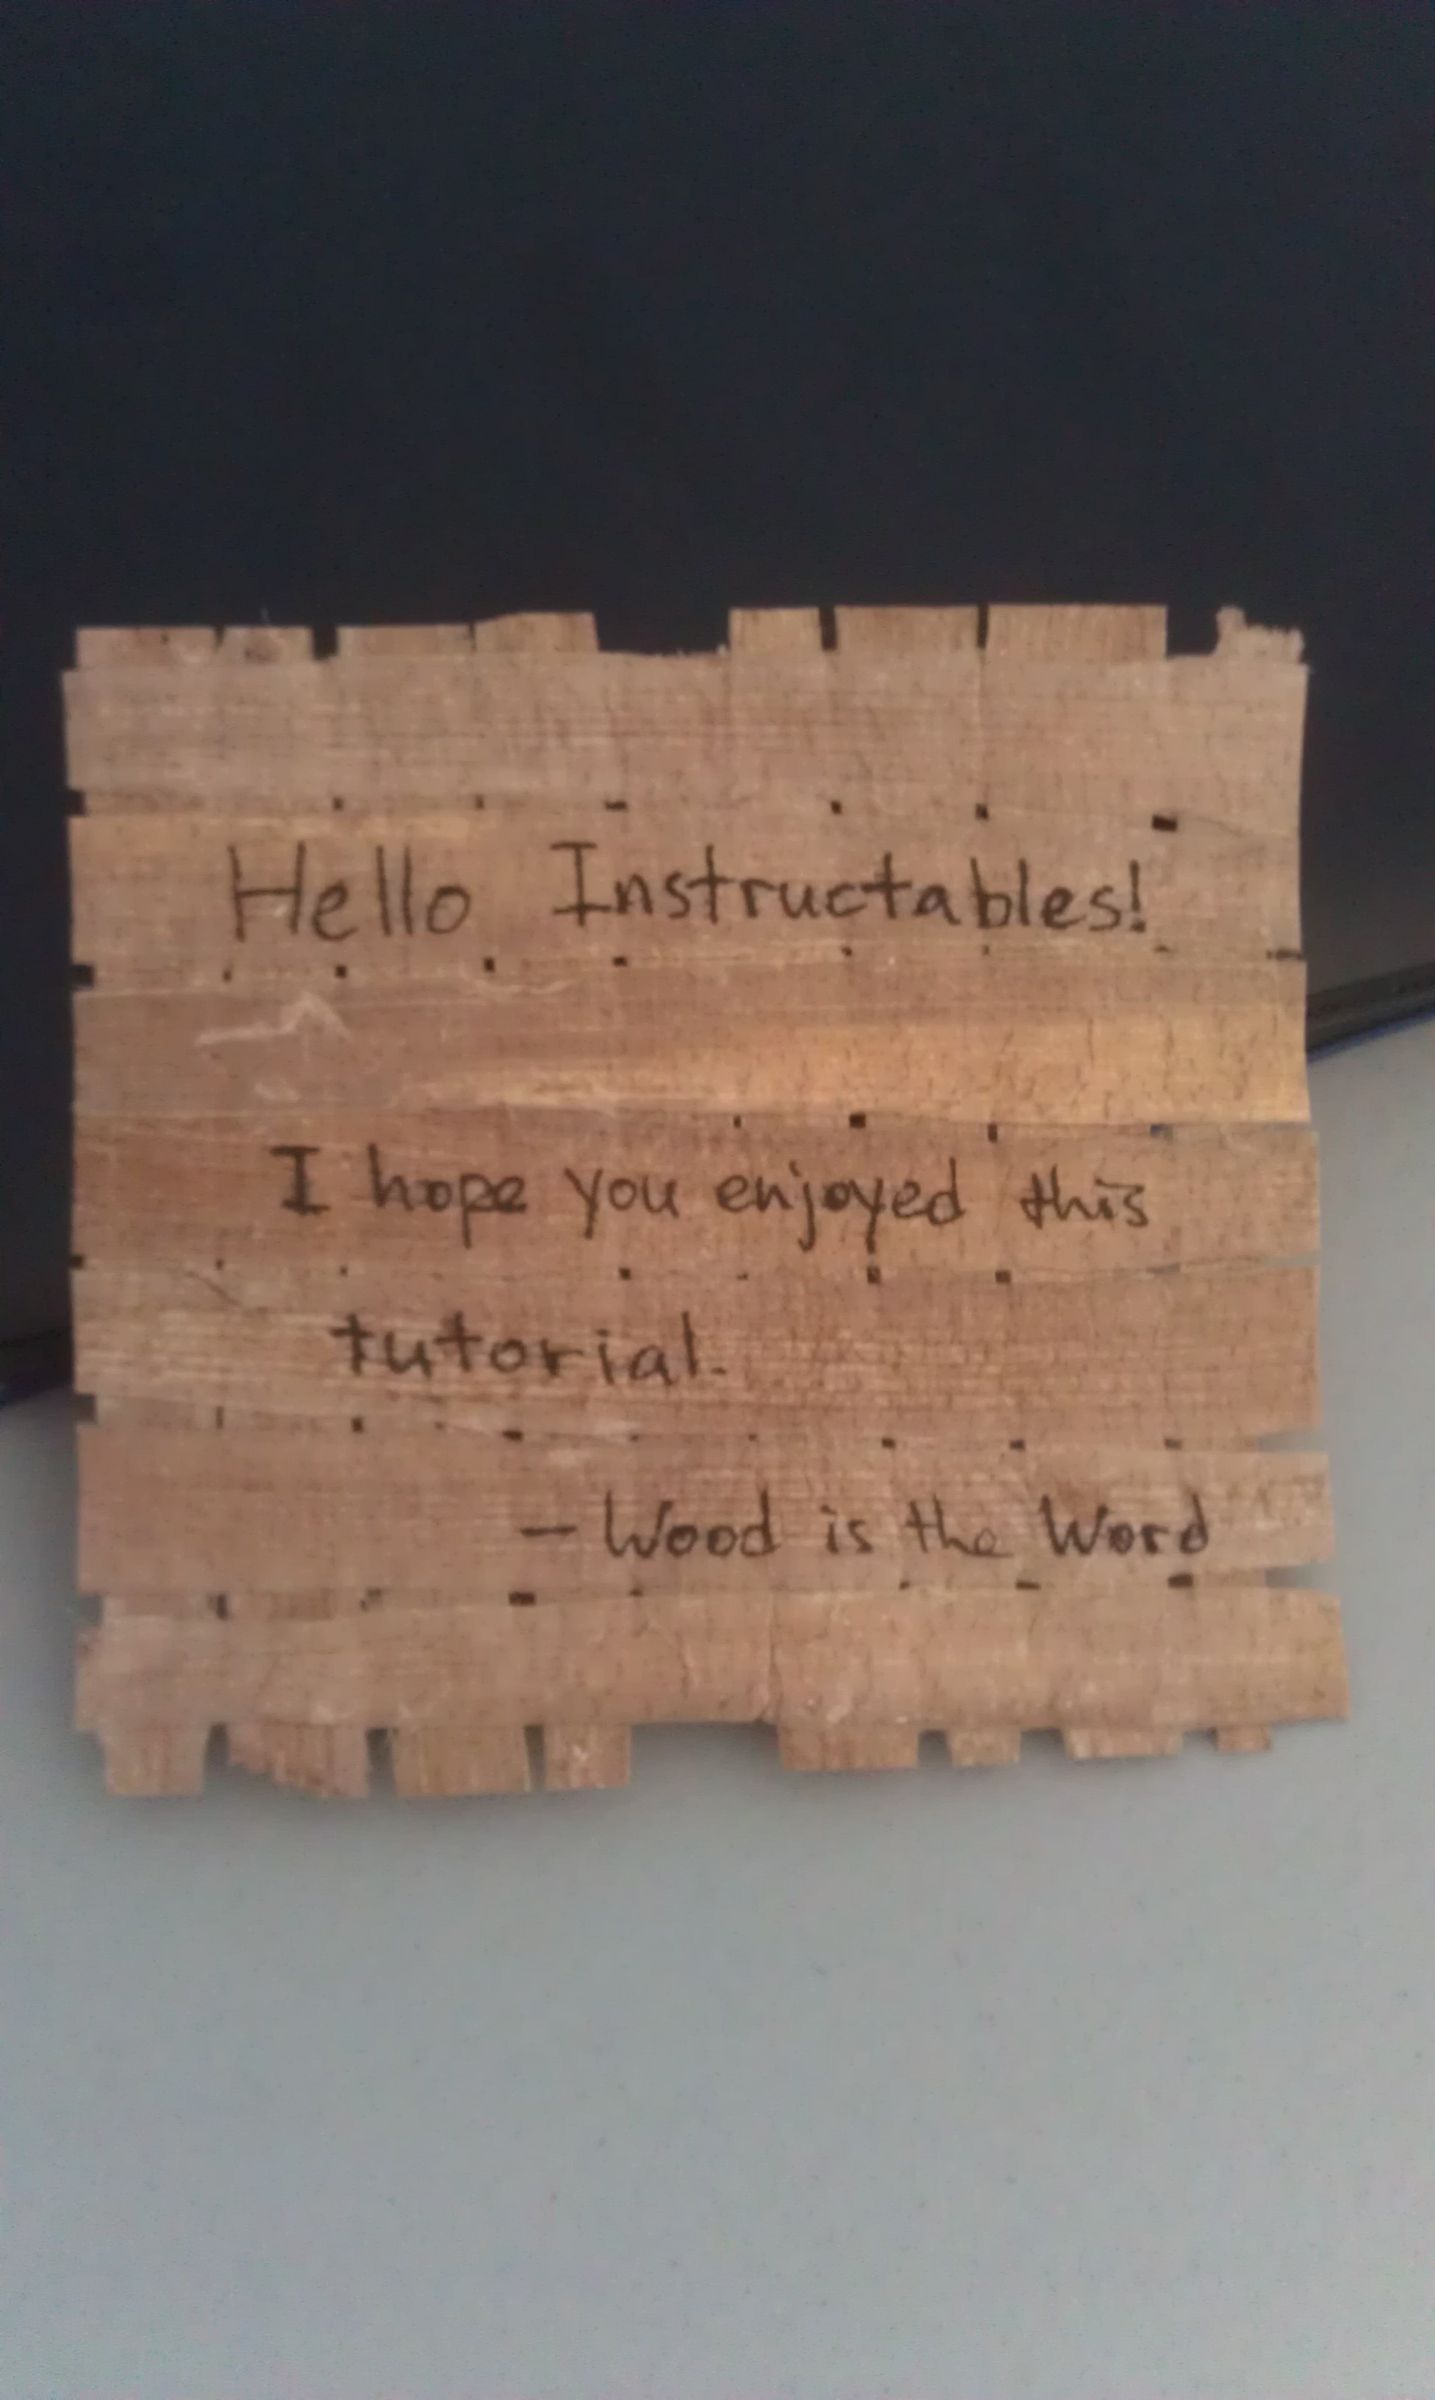 Hello Instructables!
I hope you enjoyed this
tutorial.
- Wood is the Word